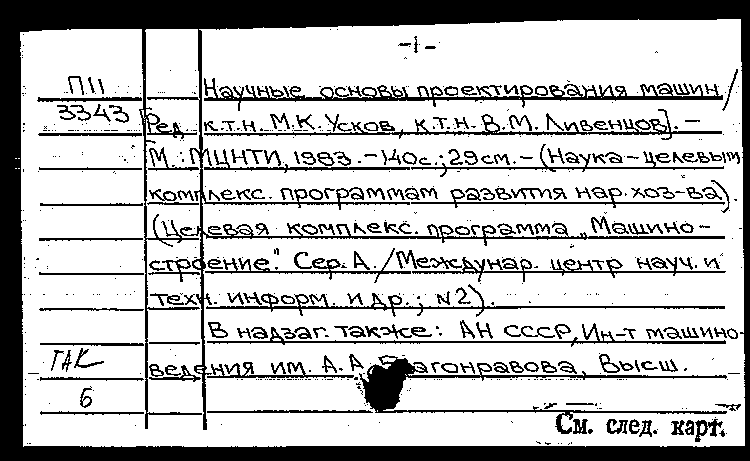 -1-
П11 Научные основы проектирования машин /
3343 [Ред. к.т.н. М.К. Усков, к.т.н. В.М. Ливенцов]. –
М.: МЦНТИ, 1983. – 140 с.; 29 см. – (Наука – целевым
комплекс. программам развития нар. хоз-ва).
(Целевая комплекс. программа „Машино-
строение". Сер. А. / Междунар. центр науч. и
техн. информ. и др.; №2).
В надзаг. также: АН СССР, Ин-т машино-
ГАК ведения им. А.А. Благонравова, Высш.
6
См. след. карт.